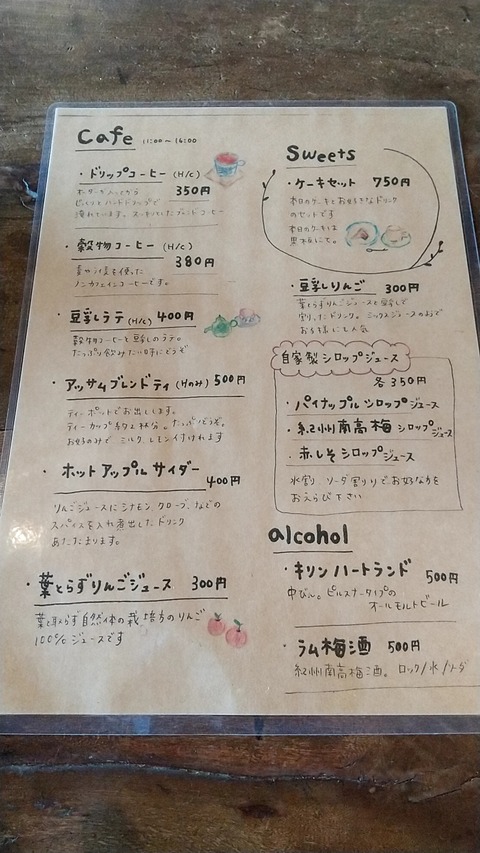 Cafe 11:00〜16:00
・ドリップコーヒー (H/c)
350円
オーダーが入ってから
・穀物コーヒー (H/c)
380円
ノンカフェインコーヒーです。
・豆乳しラテ (H/c) 400円
穀物コーヒーと豆乳しのラテ。
たっぷり飲みたい時にどうぞ
・アッサムブレンドティ (Hのみ) 500円
ティーポットでお出しします。
ティーカップ約2杯分。たっぷりどうぞ。
お好のみで ミルク、レモン付けれます
・ホットアップルサイダー
400円
りんごジュースにシナモン、クローブ、などの
スパイスを入れ煮出したドリンク
あたたまります。
・葉とらずりんごジュース 300円
葉を取らず自然体の栽培方のりんご
100%ジュースです
Sweets
・ケーキセット 750円
本日のケーキとお好きなドリンク
のセットです
本日のケーキは
黒板にて。
・豆乳しりんご 300円
葉とらずりんごジュースと豆乳しで
割ったドリンク。ミックスジュースのようで
お子様にも人気
自家製シロップジュース
各350円
・パイナップルシロップジュース
・紀州南高梅シロップジュース
・赤しそシロップジュース
水割り ソーダ割りでお好な方を
おえらび下さい
alcohol
・キリンハートランド 500円
中びん。ピルスナータイプの
オールモルトビール
・ラム梅酒 500円
紀州南高梅酒。ロック/水/ソーダ